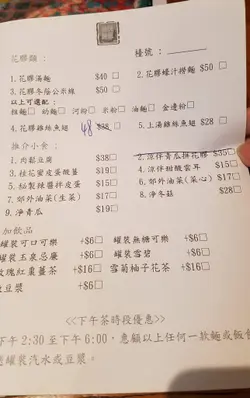 花膠麵：
檯號：
1.花膠湯麵 $40 □ 2.花膠蠔汁撈麵 $50 □
3.花膠冬陰公米線 $50 □
以上可選配：
粗麵□ 幼麵□ 河粉□ 米粉□ 油麵□ 金邊粉□
4.花膠雞絲魚翅 48 □ 5.上湯雞絲魚翅 $28 □
推介小食：
1.肉鬆豆腐 $38□ 2.涼伴青瓜撈花膠 $35□
3.桂花蜜皮蛋酸薑 $19□ 4.涼伴甜酸雲耳 $15□
5.秘製辣醬拌皮蛋 $15□ 6.郊外油菜(菜心) $17□
7.郊外油菜(生菜) $17□ 8.淨冬菇 $28□
9.淨青瓜 $19□
加飲品
罐裝可口可樂 +$6□ 罐裝無糖可樂 +$6□
罐裝玉泉忌廉 +$6□ 罐裝雪碧 +$6□
玫瑰紅棗薑茶 +$16□ 雪菊柚子花茶 +$16□
豆漿 +$6□
<<下午茶時段優惠>>
下午 2:30 至下午 6:00，惠顧以上任何一款麵或飯
罐裝汽水或豆漿。